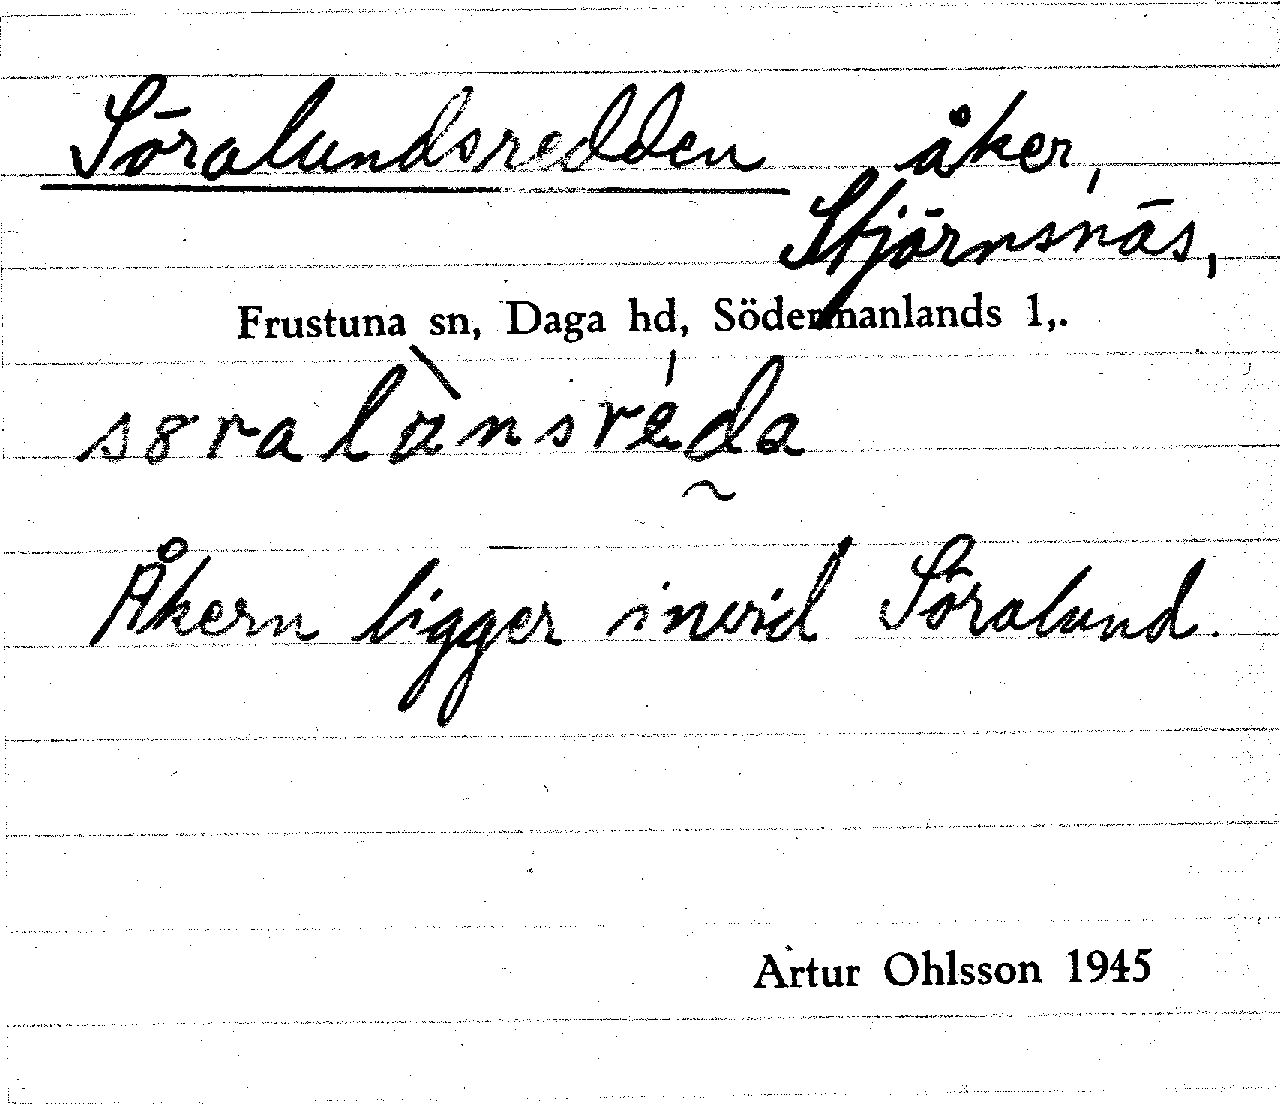 Söralundsredden åker,
Stjärnsnäs,
Frustuna sn, Daga hd, Södermanlands l,.
Åkern ligger invid Söralund.
Artur Ohlsson 1945